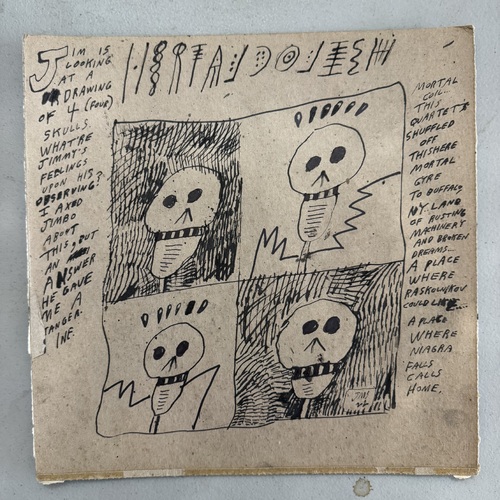 JIM IS
LOOKING
AT A
DRAWING
OF 4 (FOUR)
SKULLS.
WHAT'RE
JIMMY'S
FEELINGS
UPON HIS
OBSERVING?
I AXED
JIMBO
ABOUT
THIS, BUT
AN
ANSWER
HE GAVE
ME A
TANGER-
INE.
MORTAL
COIL...
THIS
QUARTET'S
SHUFFLED
OFF
THISHERE
MORTAL
GYRE
TO BUFFALO,
NY. LAND
OF RUSTING
MACHINERY
AND BROKEN
DREAMS...
A PLACE
WHERE
RASKOLNIKOV
COULD LIVE....
A PLACE
WHERE
NIAGRA
FALLS
CALLS
HOME.